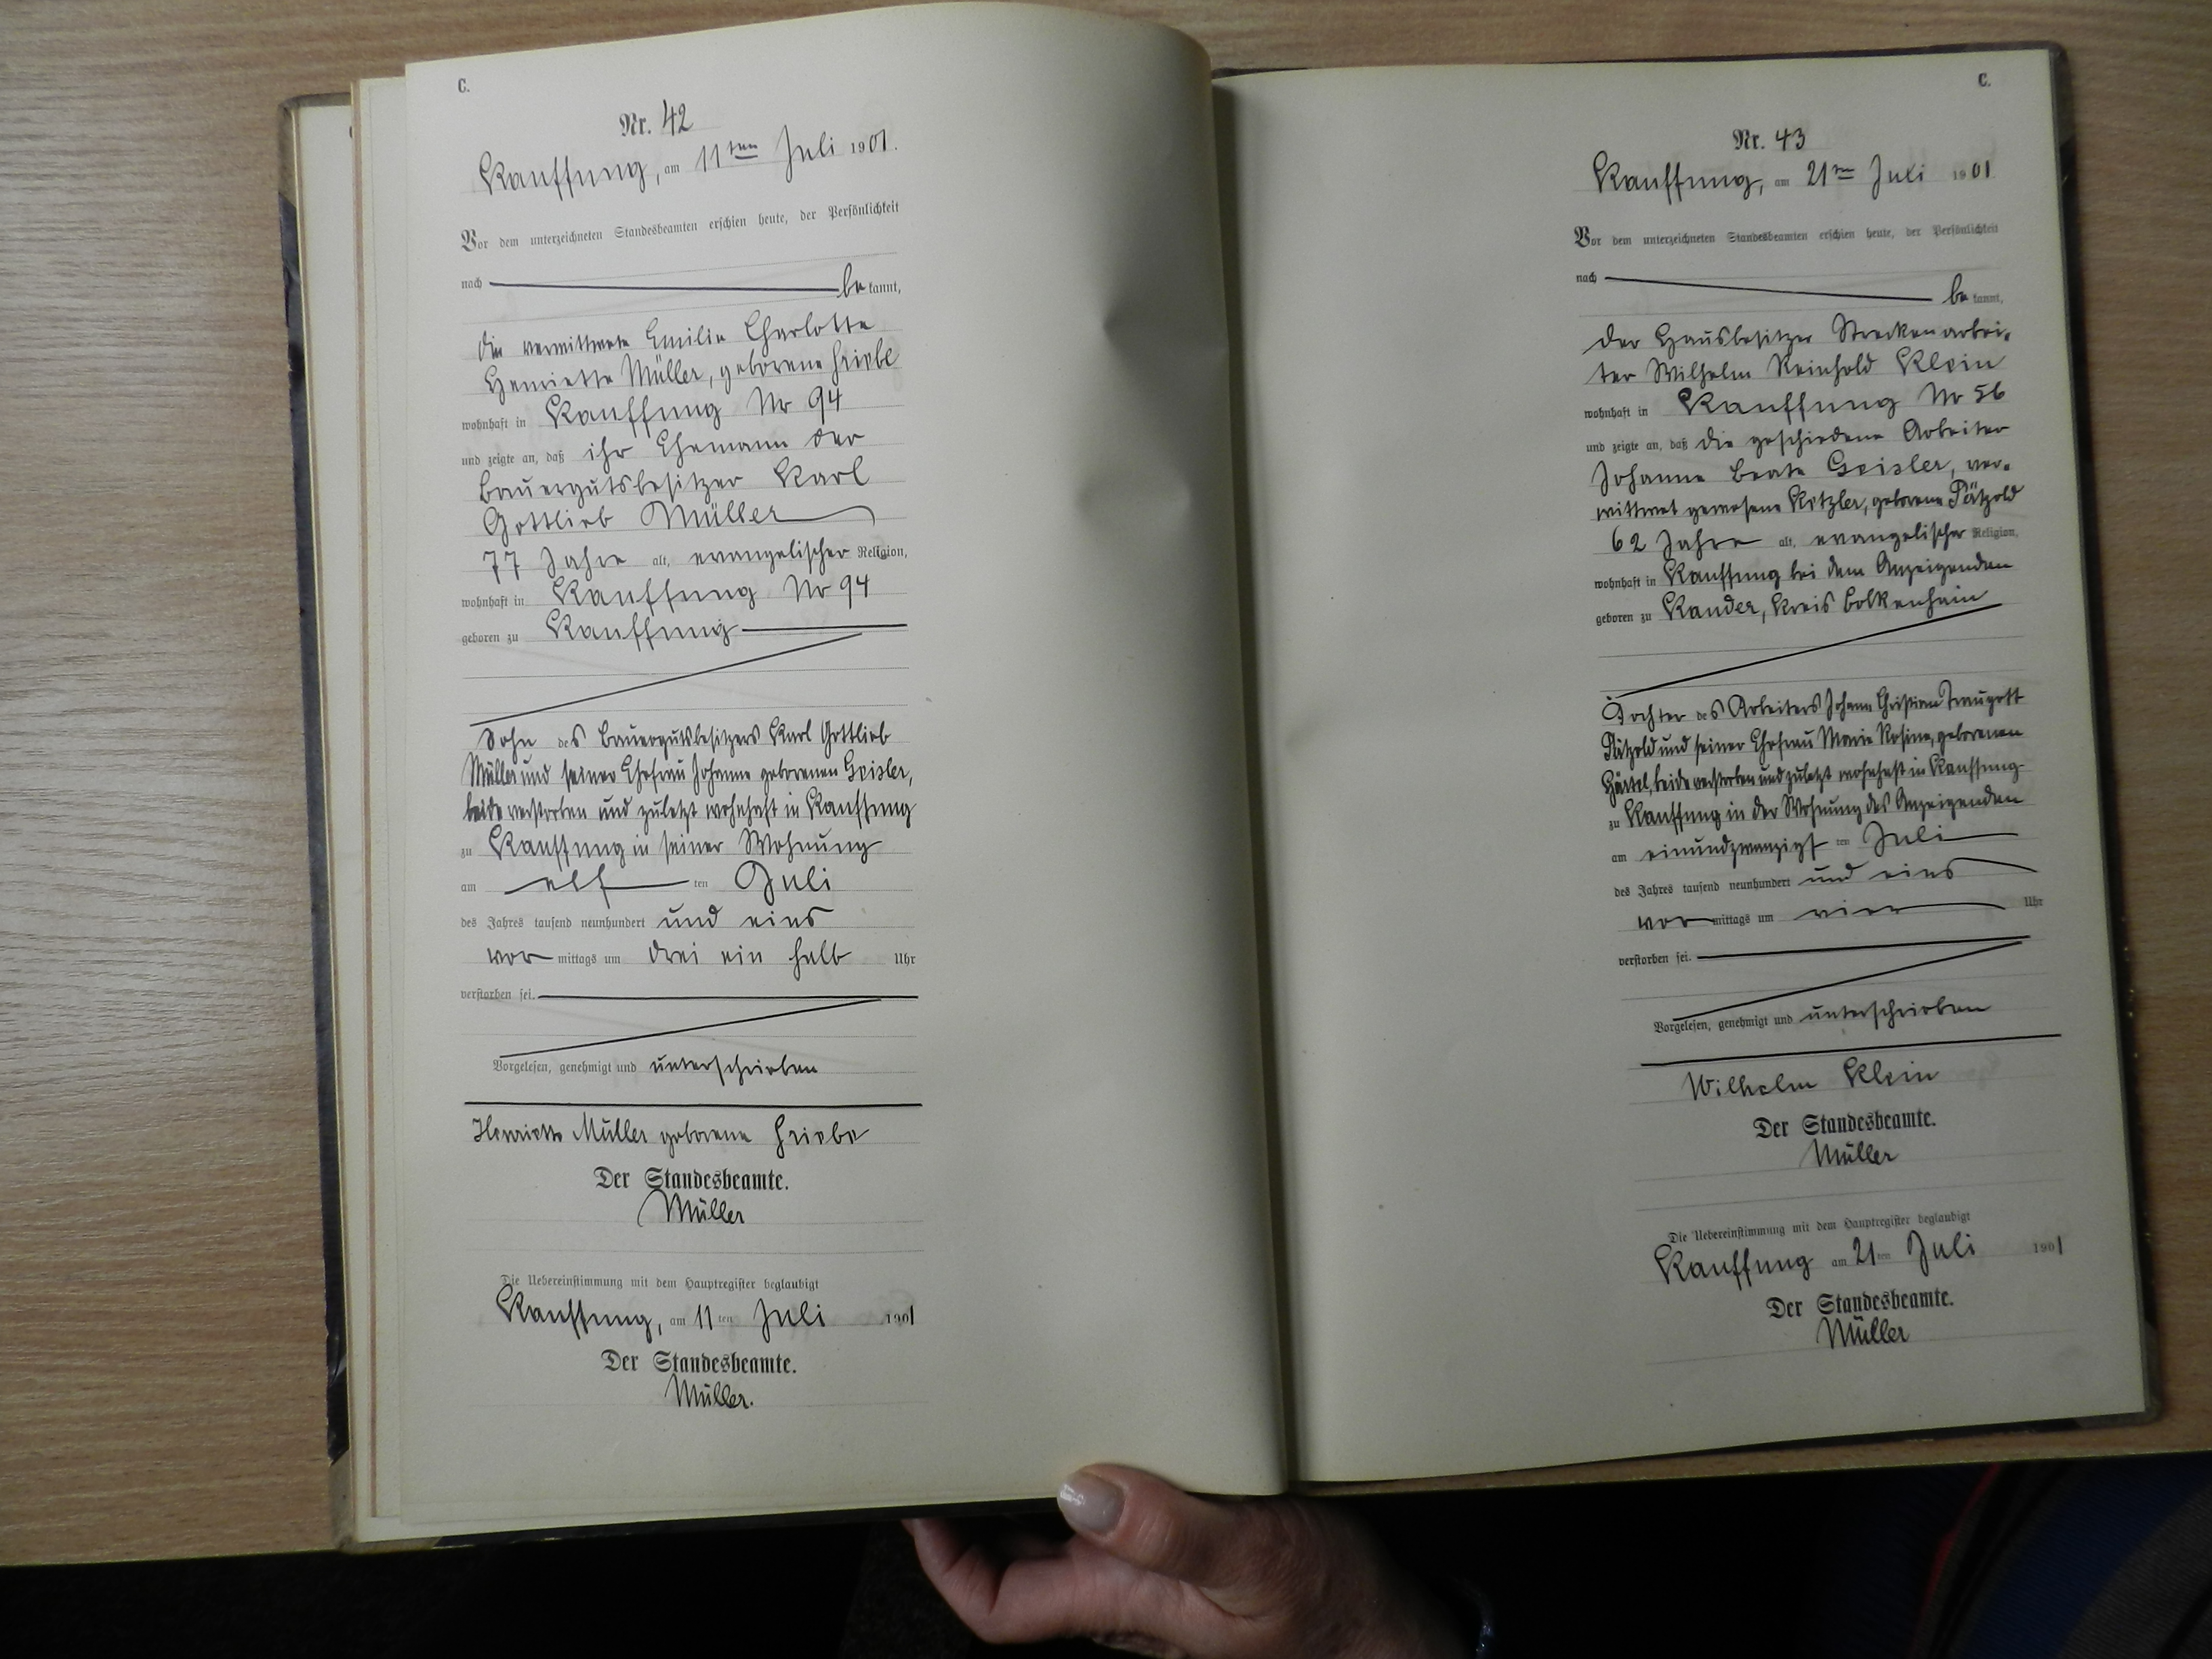 C.
Nr. 42
Kauffung, am 11ten Juli 1901.
Vor dem unterzeichneten Standesbeamten erschien heute, der Persönlichkeit
nach be kannt,
die verwittwete Emilie Charlotte
Henriette Müller, geborene Friebe
wohnhaft in Kauffung No 94
und zeigte an, daß ihr Ehemann der
Bauergutsbesitzer Karl
Gottlieb Müller
77 Jahre alt, evangelischer Religion,
wohnhaft in Kauffung No 94
geboren zu Kauffung
Sohn des Bauergutsbesitzers Karl Gottlieb
Müller und seiner Ehefrau Johanne geborenen Geisler,
beide verstorben und zuletzt wohnhaft in Kauffung
zu Kauffung in seiner Wohnung
am elf ten Juli
des Jahres tausend neunhundert und eins
vor mittags um drei ein halb Uhr
verstorben sei.
Vorgelesen, genehmigt und unterschrieben
Henriette Müller geborene Friebe
Der Standesbeamte.
Müller
Die Uebereinstimmung mit dem Hauptregister beglaubigt
Kauffung, am 11 ten Juli 1901
Der Standesbeamte.
Müller.
C.
Nr. 43
Kauffung, am 21ten Juli 1901
Vor dem unterzeichneten Standesbeamten erschien heute, der Persönlichkeit
nach be kannt,
der Hausbesitzer Streckenarbei-
ter Wilhelm Reinhold Klein
wohnhaft in Kauffung No 56
und zeigte an, daß die geschiedene Arbeiter
Johanne Beate Geisler, ver-
wittwet gewesene Kitzler, geborene Pätzold
62 Jahre alt, evangelischer Religion,
wohnhaft in Kauffung bei dem Anzeigenden
geboren zu Kauder, Kreis Bolkenhain
Tochter des Arbeiters Johann Christian Traugott
Pätzold und seiner Ehefrau Marie Rosine, geborenen
Härtel, beide verstorben und zuletzt wohnhaft in Kauffung
zu Kauffung in der Wohnung des Anzeigenden
am einundzwanzigs ten Juli
des Jahres tausend neunhundert und eins
vor mittags um vier Uhr
verstorben sei.
Vorgelesen, genehmigt und unterschrieben
Wilhelm Klein
Der Standesbeamte.
Müller
Die Uebereinstimmung mit dem Hauptregister beglaubigt
Kauffung am 21 ten Juli 1901
Der Standesbeamte.
Müller